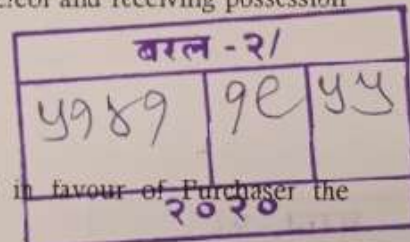 and receiving possession
बरल -२/
५१४१ १९ ५५
in favour of Purchaser the
२०२०